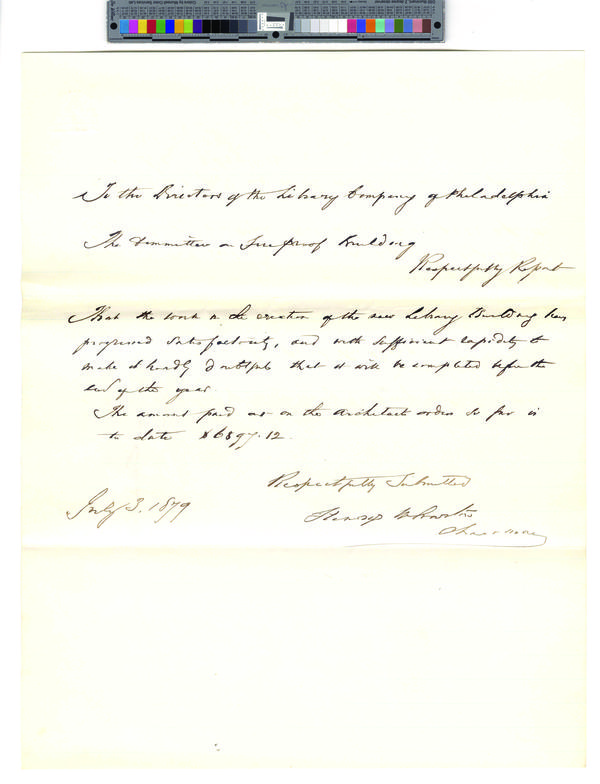 To the Directors of the Library Company of Philadelphia
The Committee on Fire proof Building
Respectfully Report
That the work in the erection of the new Library Building has
progressed satisfactorily, and with sufficient rapidity to
make it hardly doubtful that it will be completed before the
end of the year
The amount paid out on the Architects orders so far is
to date $6897.12.
Respectfully Submitted
July 3, 1879
Chairman